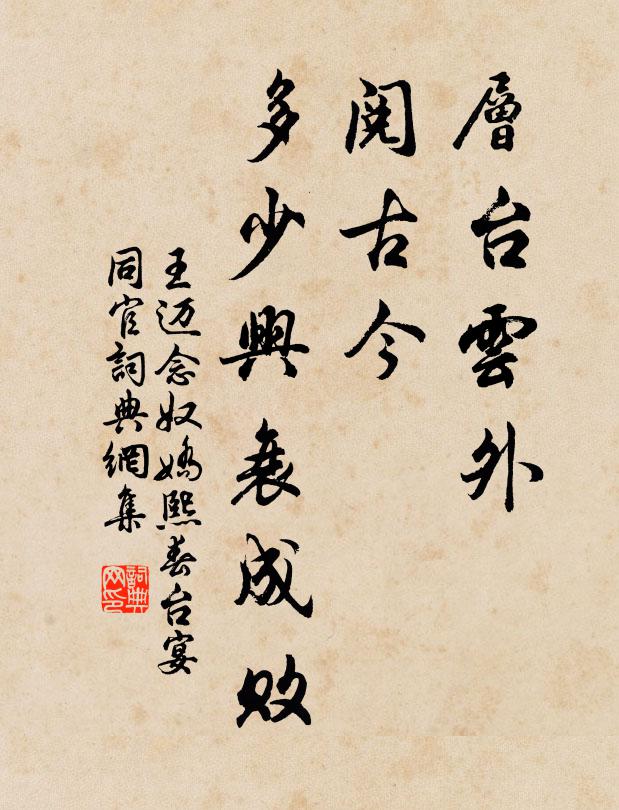 層台雲外
閱古今
多少興衰成敗
王迈念奴嬌熙春台宴
同官詞典網集
詞典网印